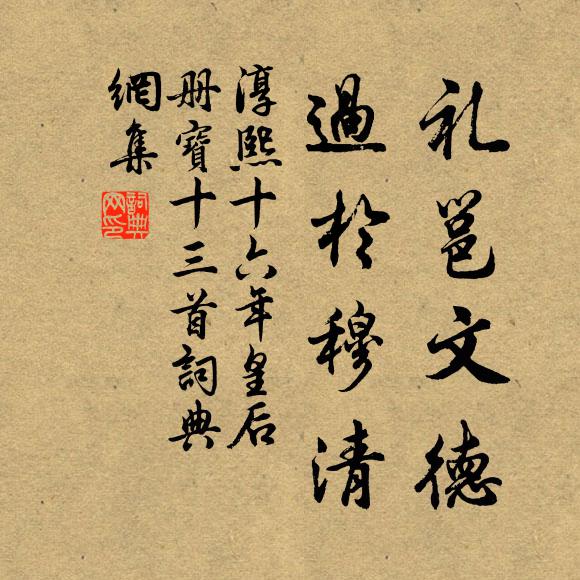 礼邕文德
過於穆清
淳熙十六年皇后
册寶十三首詞典
網集
詞典网印